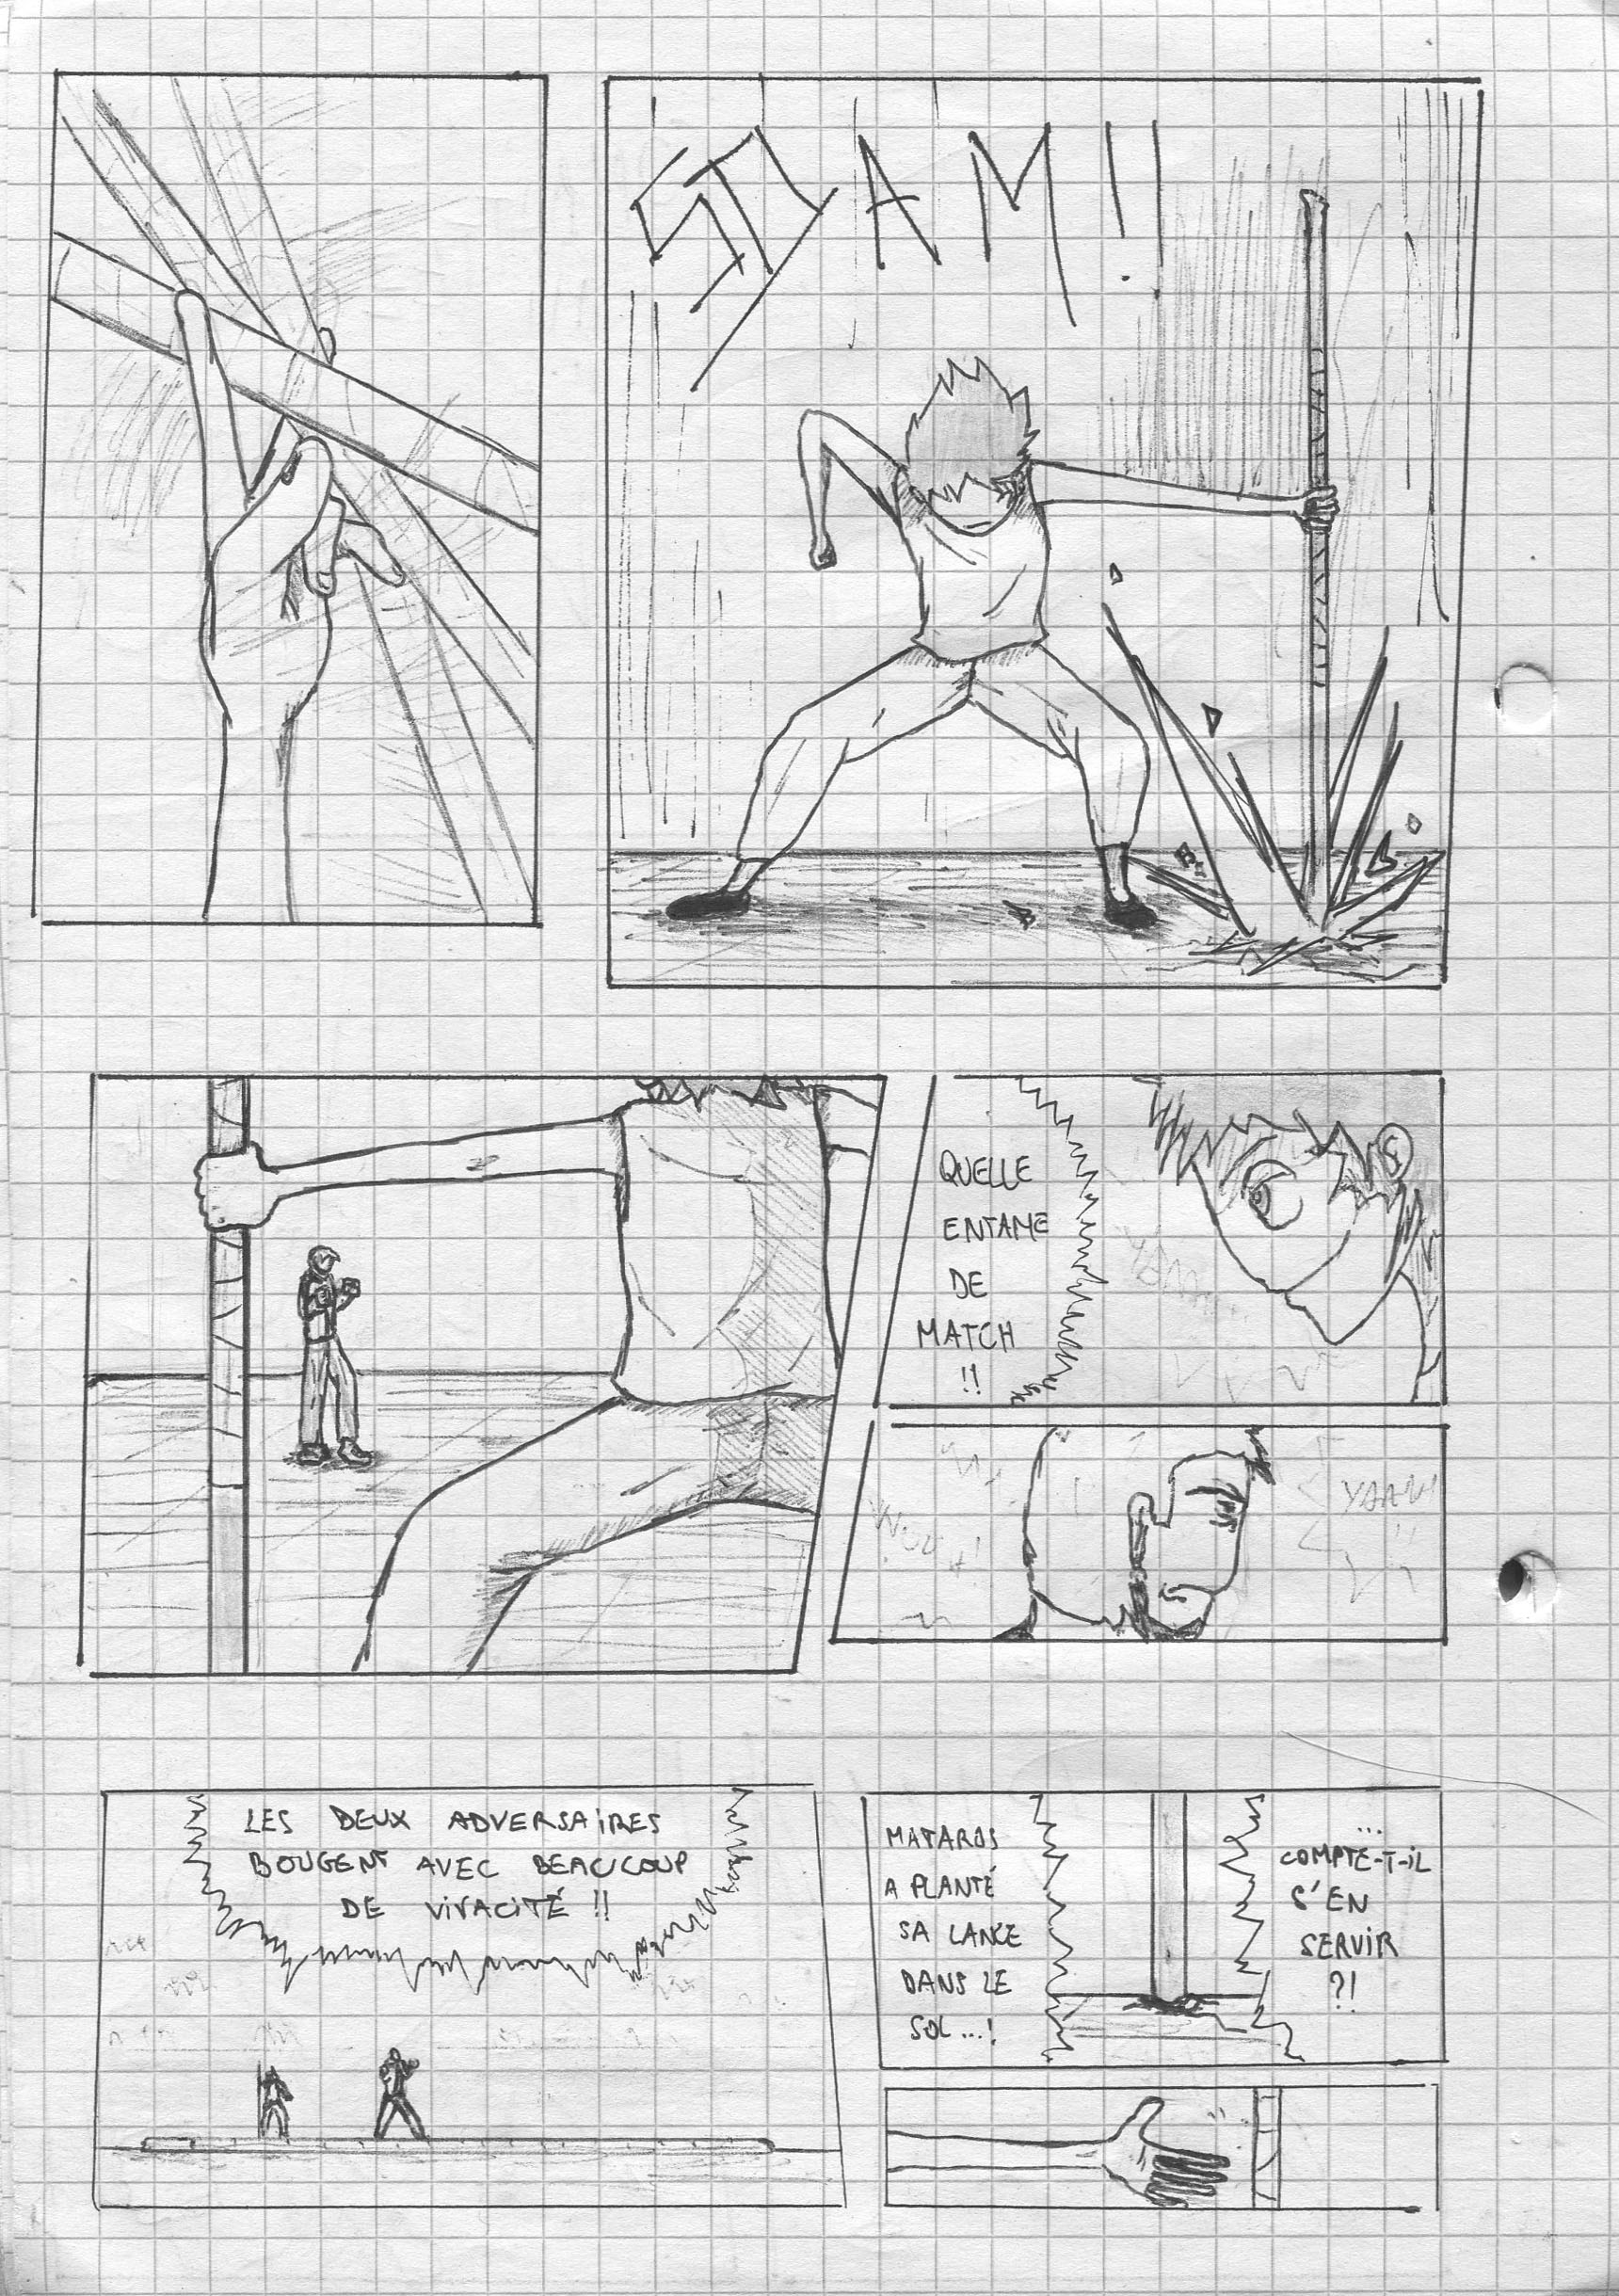 SLAM!!
QUELLE
ENTAME
DE
MATCH
!!
YAAH
!!
LES DEUX ADVERSAIRES
BOUGENT AVEC BEAUCOUP
DE VIVACITÉ !!
MATAROS
A PLANTÉ
SA LANCE
DANS LE
SOL...!
...
COMPTE-T-IL
S'EN
SERVIR
?!